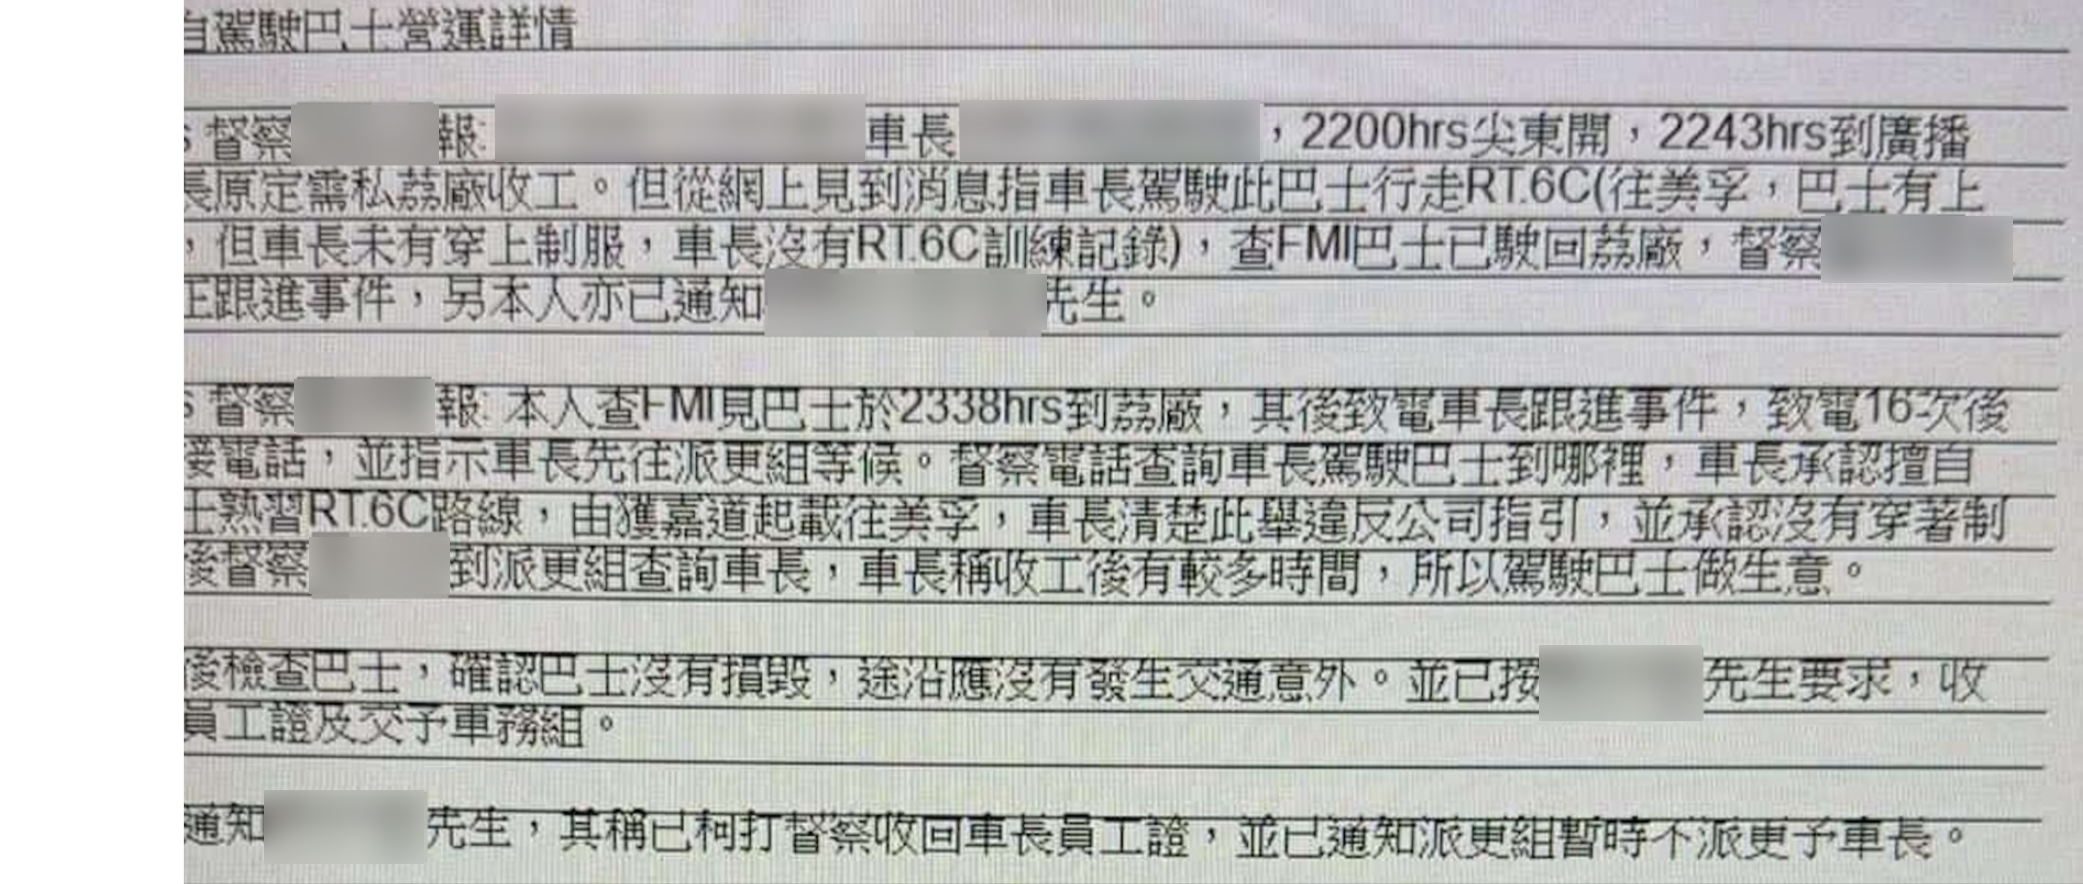 自駕駛巴士營運詳情
督察 報: 車長 ，2200hrs尖東開，2243hrs到廣播
長原定需私荔廠收工。但從網上見到消息指車長駕駛此巴士行走RT.6C(往美孚，巴士有上
，但車長未有穿上制服，車長沒有RT.6C訓練記錄)，查FMI巴士已駛回荔廠，督察
正跟進事件，另本人亦已通知 先生。
督察 報: 本人查FMI見巴士於2338hrs到荔廠，其後致電車長跟進事件，致電16次後
接電話，並指示車長先往派更組等候。督察電話查詢車長駕駛巴士到哪裡，車長承認擅自
士熟習RT.6C路線，由獲嘉道起載往美孚，車長清楚此舉違反公司指引，並承認沒有穿著制
後督察 到派更組查詢車長，車長稱收工後有較多時間，所以駕駛巴士做生意。
後檢查巴士，確認巴士沒有損毀，途沿應沒有發生交通意外。並已按 先生要求，收
員工證及交予車務組。
通知 先生，其稱已柯打督察收回車長員工證，並已通知派更組暫時不派更予車長。